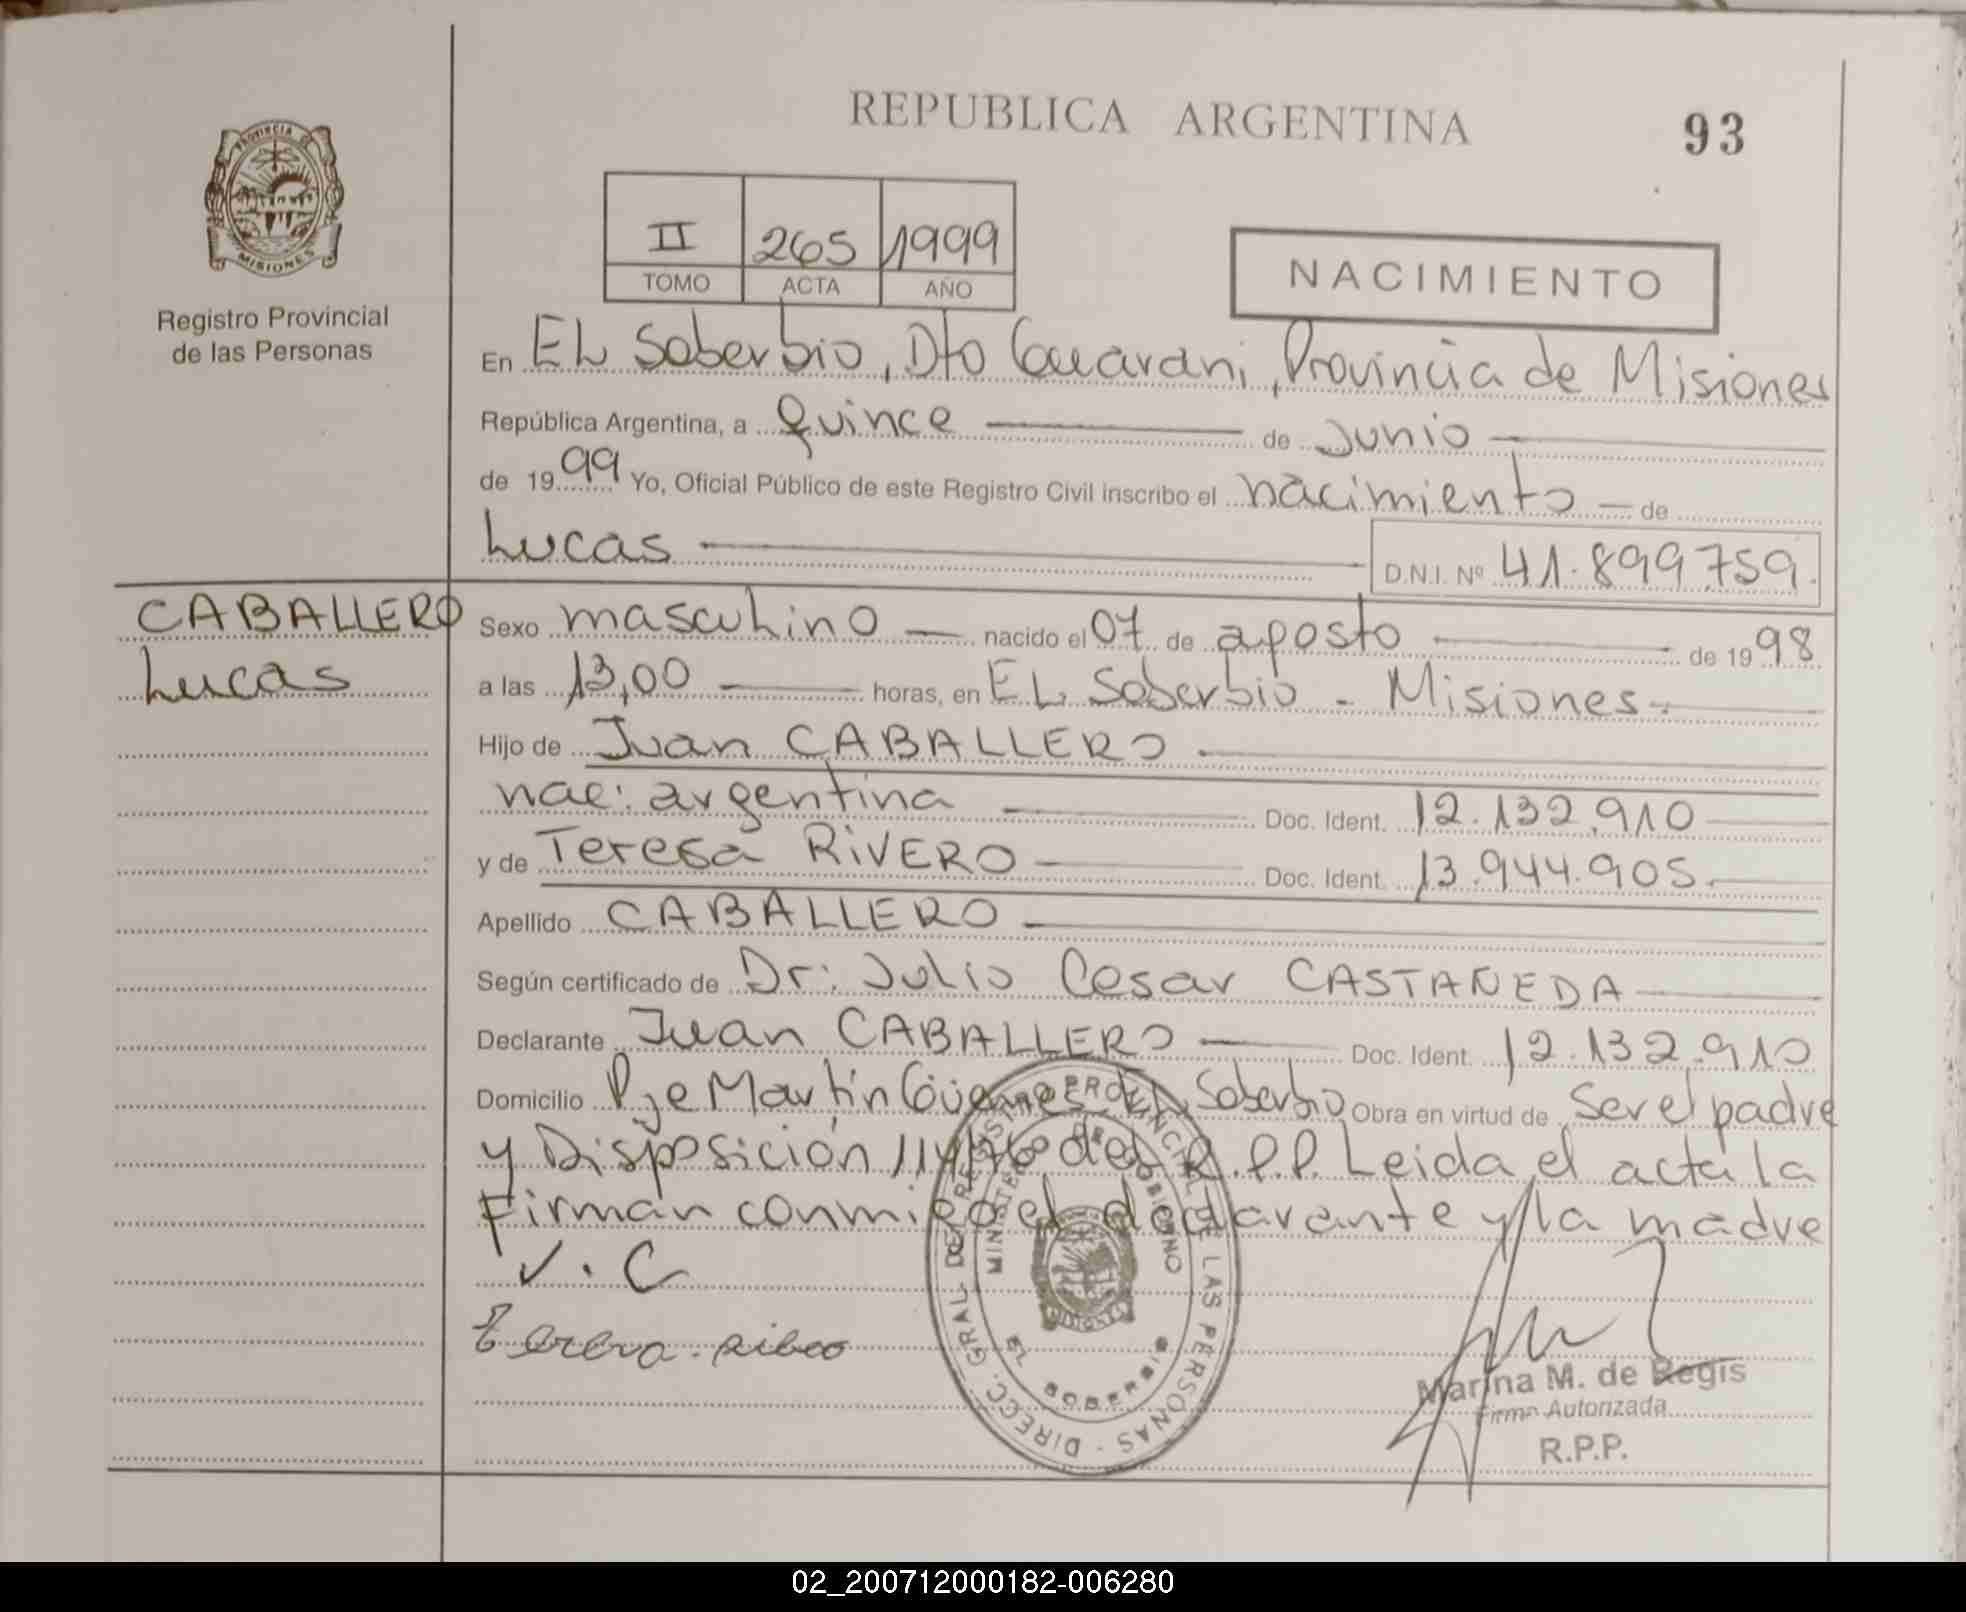 REPUBLICA ARGENTINA
93
PROVINCIA DE
MISIONES
Registro Provincial
de las Personas
II 265 1999
TOMO ACTA AÑO
NACIMIENTO
En EL Soberbio, Dto Guarani, Provincia de Misiones
República Argentina, a quince de Junio
de 1999 Yo, Oficial Público de este Registro Civil inscribo el nacimiento de
Lucas
D.N.I. Nº 41.899.759.
CABALLERO
Lucas
Sexo masculino nacido el 07 de agosto de 1998
a las 13,00 horas, en EL Soberbio - Misiones-
Hijo de Juan CABALLERO
nac: argentina Doc. Ident. 12.132.910
y de Teresa RIVERO Doc. Ident. 13.944.905.
Apellido CABALLERO
Según certificado de Dr: Julio Cesar CASTAÑEDA
Declarante Juan CABALLERO Doc. Ident. 12.132.910
Domicilio Pje Martín Güemes EL Soberbio Obra en virtud de Ser el padre
y Disposición del R.P.P. Leida el acta la
Firman conmigo el declarante y la madre
J.C
DIRECC. GRAL. DEL REGISTRO PROVINCIAL DE LAS PERSONAS
MINISTERIO DE GOBIERNO
EL SOBERBIO
Marina M. de Regis
Firma Autorizada
R.P.P.
02_200712000182-006280